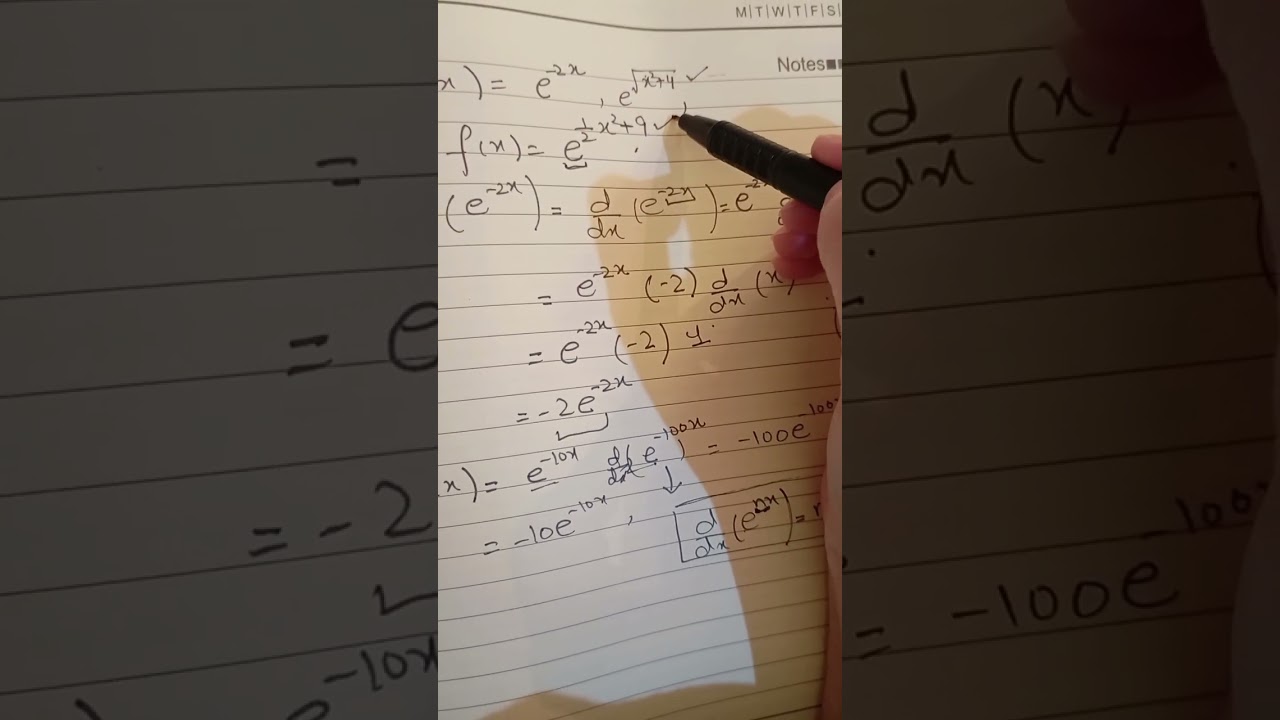 M|T|W|T|F|S|
Notes
x) = e^{-2x}, e^{\sqrt{x^2+4}} ✓
f(x) = e^{\frac{1}{2}x^2+9} ✓
(e^{-2x}) = \frac{d}{dx}(e^{-2x}) = e^{-2x}
= e^{-2x} (-2) \frac{d}{dx}(x
= e^{-2x} (-2) 1.
= -2e^{-2x}
x) = e^{-10x} \frac{d}{dx}(e^{-100x}) = -100e^{-100
= -10e^{-10x}, \frac{d}{dx}(e^{nx}) = n